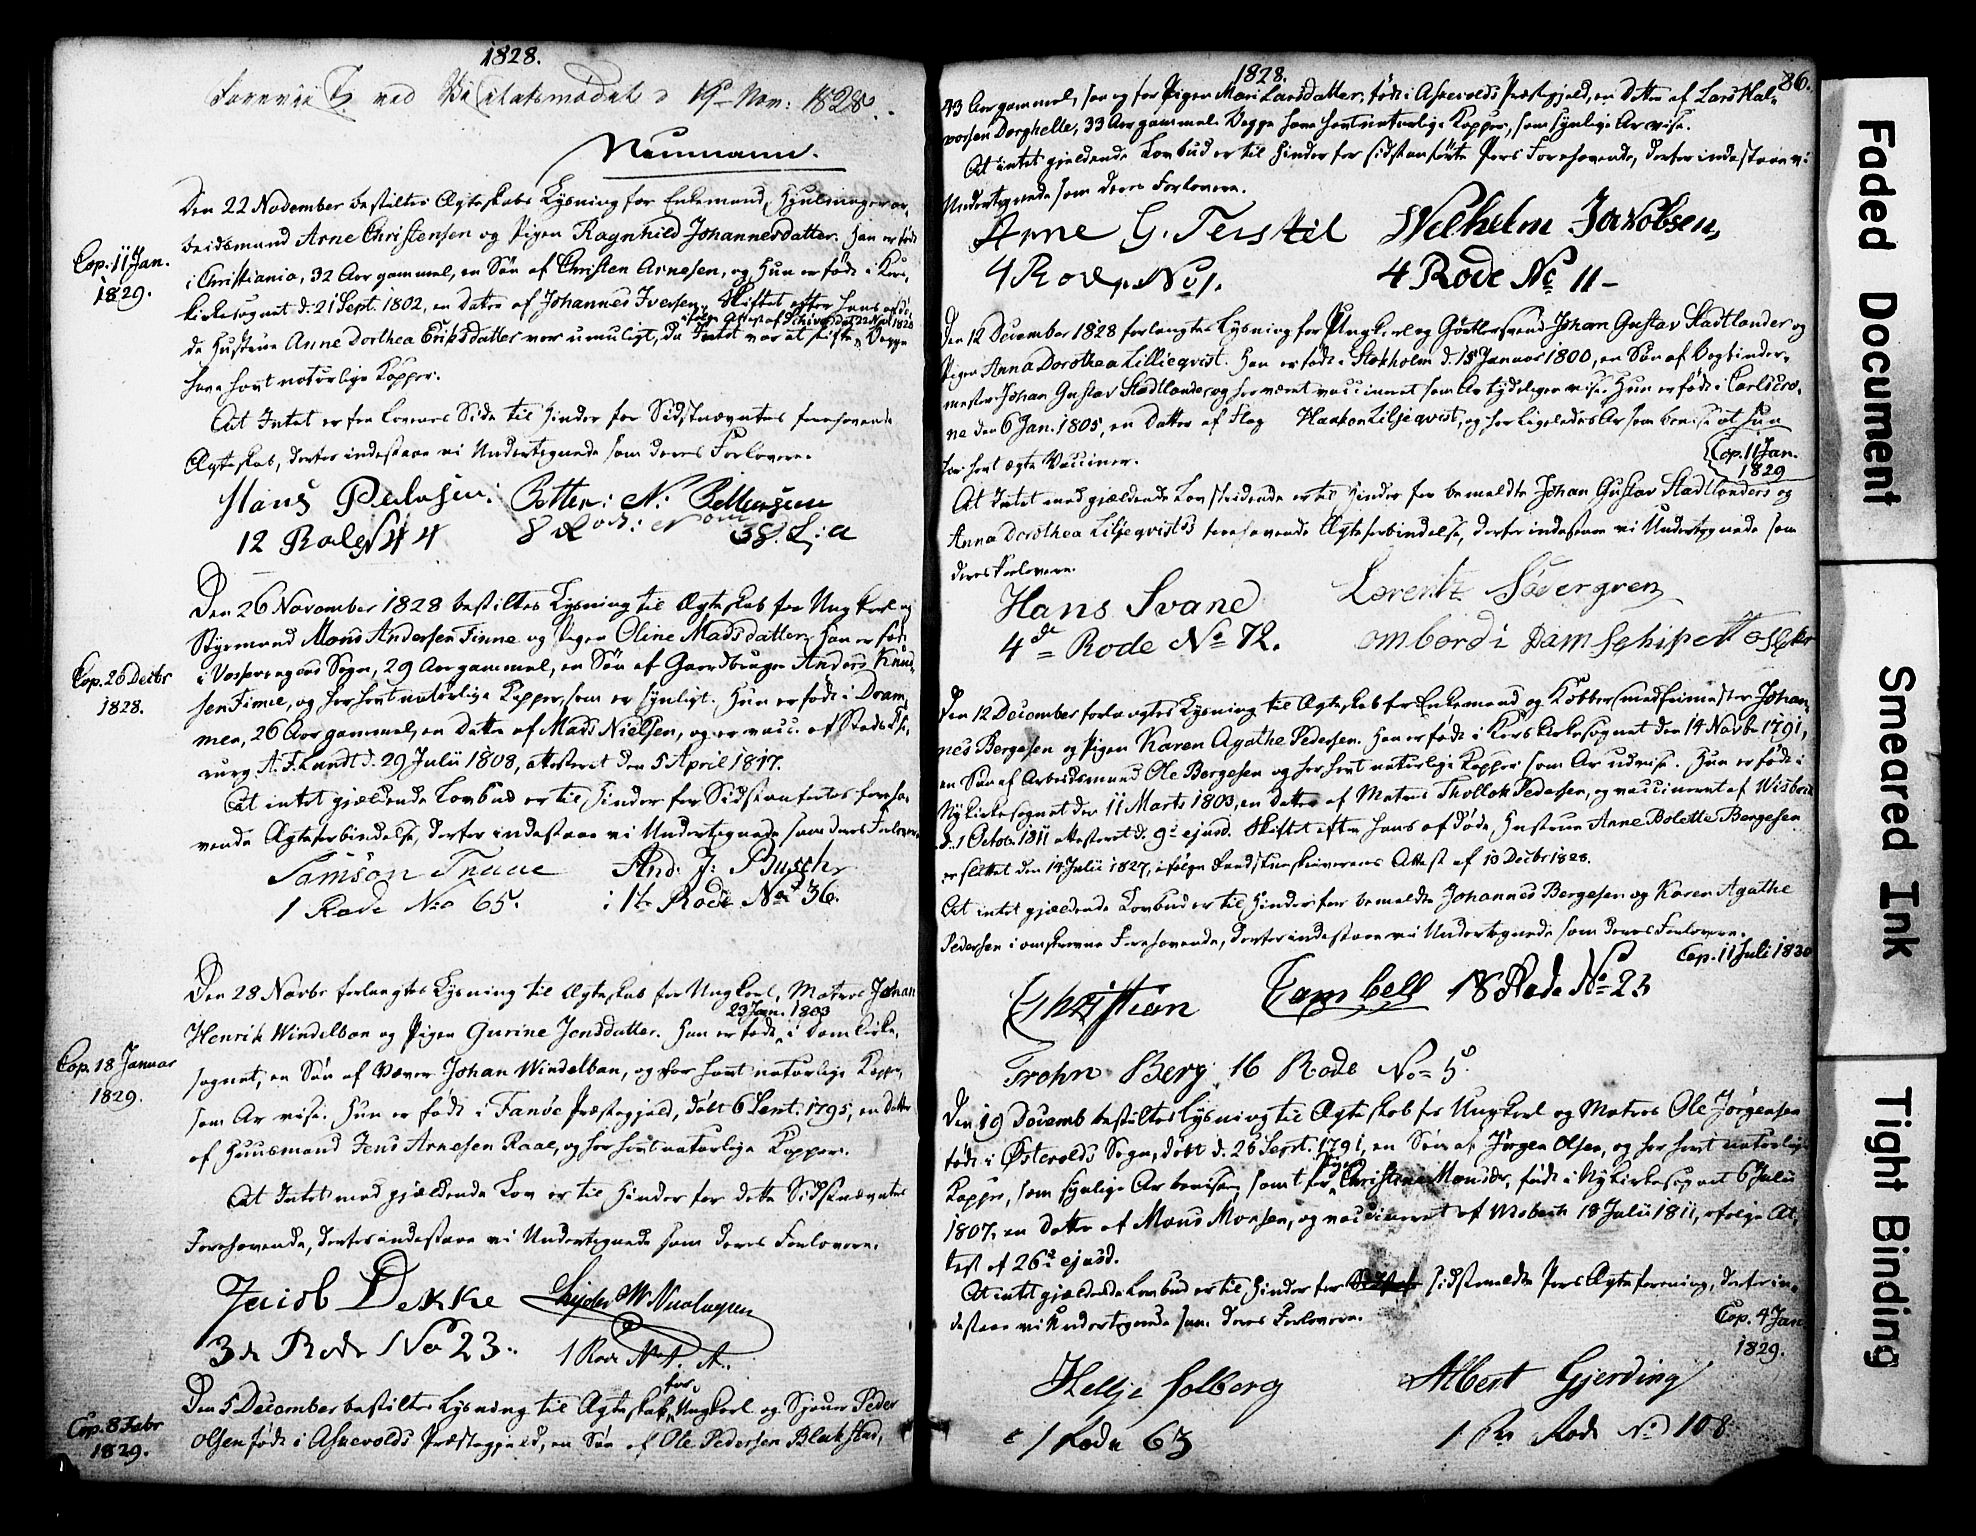 1828.
ved Visitatsmødet d 19de Nov: 1828.
Neumann.
Den 22 November bestiltes Ægteskabs Lysning for Enkemand, Hjulmager ar-
beidsmand Arne Christensen og Pigen Ragnhild Johannesdatter. Han er født
i Christiania, 32 Aar gammel, en Søn af Christen Arnesen, og hun er født i Kors-
kirkesognet d. 21 Sept. 1802, en Datter af Johannes Iversen. Skiftet efter hans afdø-
ifølge Attest af Skiveren dat. 22 Nov. 1828
de Hustrue Anne Dorthea Eriksdatter var umuligt, da Intet var at skifte. Begge
have havt naturlige Kopper.
At Intet er fra Lovens Side til Hinder for Sidstnævntes forehavende
Ægteskab, derfor indestaae vi Undertegnede som deres Forlovere.
Cop. 11 Jan.
1829.
Hans Pedersen. Petter: N: Pettersen
12 Rode N 44 8 Rode: No 38. L: a
Den 26 November 1828 bestiltes Lysning til Ægteskab for Ungkarl og
Styrmand Mons Andersen Finne og Pigen Oline Madsdatter. Han er født
i Vossevangens Sogn, 29 Aar gammel, en Søn af Gaardbruger Anders Knud-
sen Finne, og har havt naturlige Kopper, som er synligt. Hun er født i Dram-
men, 26 Aar gammel, en Datter af Mads Nielsen, og er vacc. af Stads Chi-
rurg A. F. Lundt d. 29 Julii 1808, attesteret den 5 April 1817.
At intet gjældende Lovbud er til Hinder for Sidstanførtes foreha-
vende Ægteforbindelse, derfor indestaae vi Undertegnede som deres Forlovere
Cop. 26 Decbr
1828.
Samson Traae And: J: Busch
1 Rode No 65. i 1te Rode No 36.
Den 28 Novbr forlangtes Lysning til Ægteskab for Ungkarl, Matros Johan
23 Jan. 1803
Henrik Windelban og Pigen Gurine Jensdatter. Han er født i Domkirke-
sognet, en Søn af Væver Johan Windelban, og har havt naturlige Kopper,
som Ar vise. Hun er født i Fanøe Præstegjeld, døbt 6 Sept. 1795, en Datter
af Huusmand Jens Arnesen Raae, og har havt naturlige Kopper.
At Intet mod gjældende Lov er til Hinder for dette Sidstnævntes
Forehavende, derfor indestaae vi Undertegnede som deres Forlovere.
Cop. 18 Januar
1829.
Jacob Dekke
3de Rode No 23. 1 Rode No 1. A.
for
Den 5 December bestiltes Lysning til Ægteskab Ungkarl og Peder
Olsen født i Askevolds Præstegjeld, en Søn af Ole Pedersen Blakstad,
Cop. 8 Febr
1829.
1828.
86.
43 Aar gammel, saa og for Pigen Mari Larsdatter, født i Askevolds Præstegjeld, en Datter af Lars Hal-
vorsen Dorghelle, 33 Aar gammel. Begge have havt naturlige Kopper, som synlige Ar vise.
At intet gjældende Lovbud er til Hinder for sidstanførte Pars Forehavende, derfor indestaae vi
Undertegnede som deres Forlovere.
Arne G. Terstil Wilhelm Jacobsen
4 Rode No 1. 4 Rode No 11-
Den 12 December 1828 forlangtes Lysning for Ungkarl og Gørtlersvend Johan Gustav Stadtlander og
Pigen Anna Dorothea Lillieqvist. Han er født i Stokholm d. 15 Januar 1800, en Søn af Bogbinder-
mester Johan Gustav Stadtlander, og har været vaccineret som Ar tydeligen vise. Hun er født i Carlscro-
ne den 6 Jan. 1805, en Datter af Flag Haakon Liljeqvist, og har ligeledes Ar som bevise at hun
har havt ægte Vacciner.
Cop. 11 Jan.
1829
At Intet mod gjældende Lov stridende er til Hinder for bemeldte Johan Gustav Stadtlanders og
Anna Dorothea Liljeqvists forehavende Ægteforbindelse, derfor indestaae vi Undertegnede som
deres Forlovere.
Hans Svane Lorentz Søvergren
4de Rode No 72. ombord i Dam Schipet
Den 12 December forlangtes Lysning til Ægteskab for Enkemand og Kobbersmedsvendmester Johan-
nes Bergesen og Pigen Karen Agathe Pedersen. Han er født i Korskirkesognet den 14 Novbr 1791,
en Søn af Arbeidsmand Ole Bergesen og har havt naturlige Kopper som Ar udvise. Hun er født i
Nykirkesognet den 11 Marts 1803, en Datter af Matros Thollak Pedersen, og vaccineret af Wisbech
d. 1 Octob. 1811 attesteret d. 9de ejusd. Skiftet efter hans afdøde Hustrue Anne Bolette Bergesen
er sluttet den 14 Julii 1827, ifølge Landskriverens Attest af 10 Decbr 1828.
At intet gjældende Lovbud er til Hinder for bemeldte Johannes Bergesen og Karen Agathe
Pedersen i omskrevne Forehavende, derfor indestaae vi Undertegnede som deres Forlovere.
Cop. 11 Juli 1830
Christian Cambell 18 Rode No 23
Frohn Berg 16 Rode No 5
Den 19 Decemb bestiltes Lysning til Ægteskab for Ungkarl og Matros Ole Jørgensen
født i Østevolds Sogn, døbt d. 26 Sept. 1791, en Søn af Jørgen Olsen, og har havt naturlige
Pigen
Kopper, som synlige Ar bevise, samt for Christine Monsdr, født i Nykirkesognet 6 Julii
1807, en Datter af Mons Monsen, og vaccineret af Wisbech 18 Julii 1811, ifølge At-
test af 26de ejusd.
At intet gjældende Lovbud er til Hinder for sidstmeldte Pars Ægteforening, derfor in-
destaae vi Undertegnede som deres Forlovere.
Cop. 4 Jan
1829.
Hellje Solberg Albert Gjerding
1 Rode 63 1 Rode No 108
Faded Document
Smeared Ink
Tight Binding